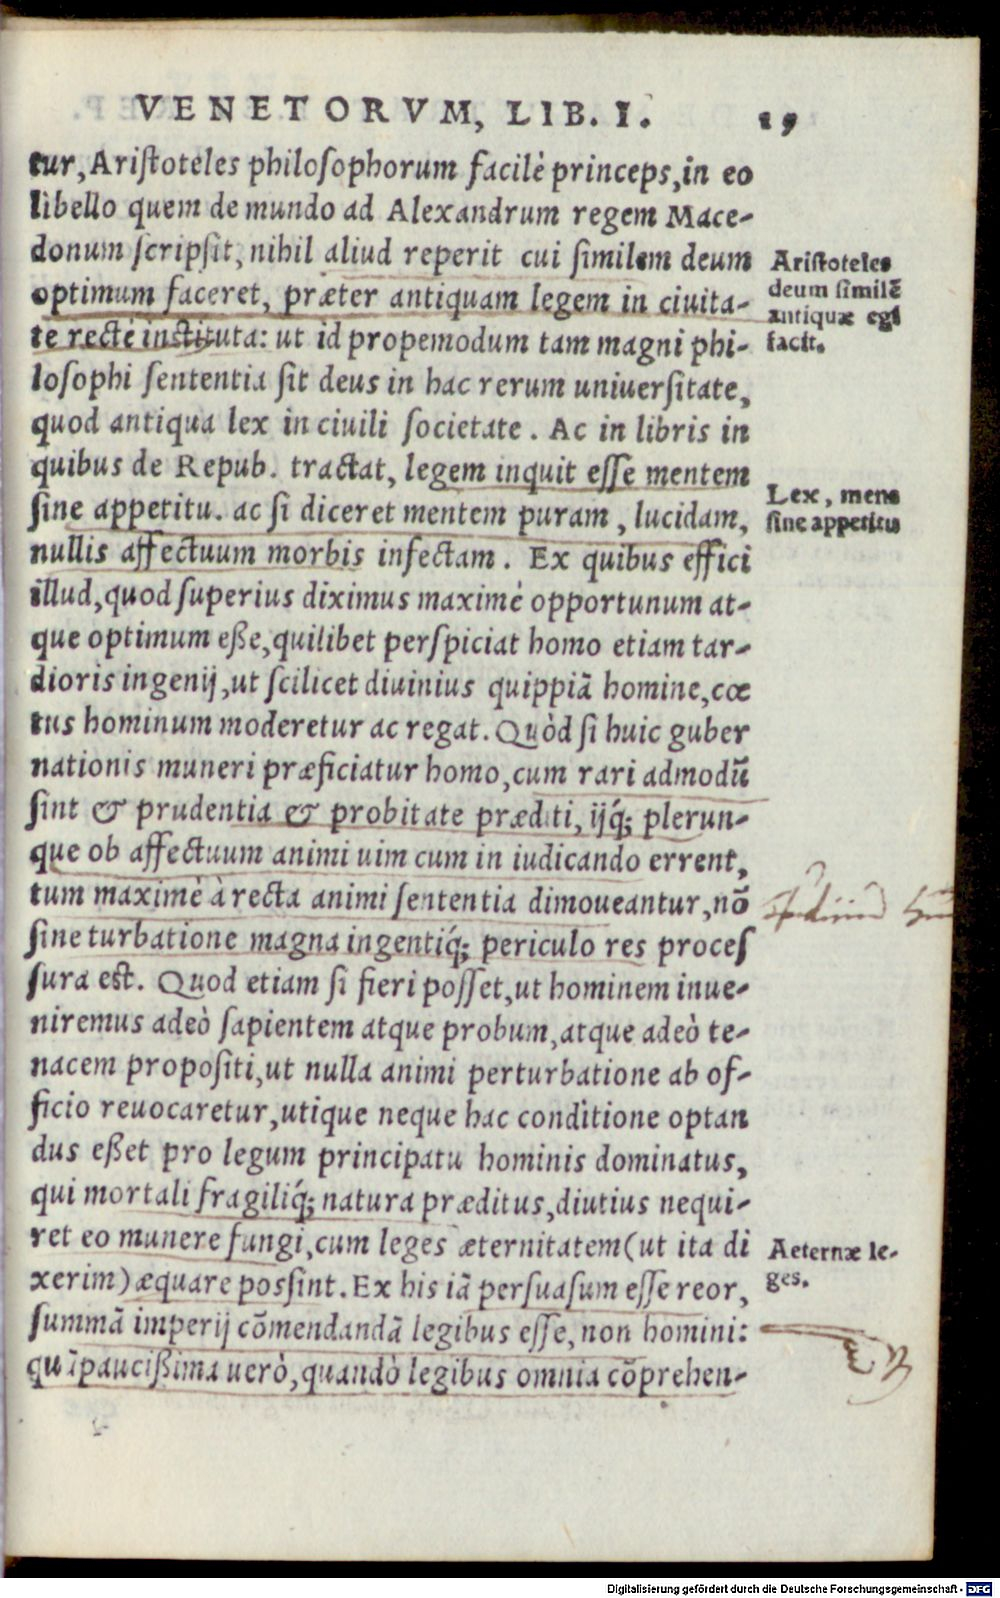 VENETORVM, LIB. I. 19
tur, Aristoteles philosophorum facilè princeps, in eo
libello quem de mundo ad Alexandrum regem Mace-
donum scripsit, nihil aliud reperit cui similem deum
optimum faceret, præter antiquam legem in ciuita-
te rectè instituta: ut id propemodum tam magni phi-
losophi sententia sit deus in hac rerum uniuersitate,
quod antiqua lex in ciuili societate. Ac in libris in
quibus de Repub. tractat, legem inquit esse mentem
sine appetitu. ac si diceret mentem puram, lucidam,
nullis affectuum morbis infectam. Ex quibus effici
illud, quod superius diximus maximè opportunum at-
que optimum eße, quilibet perspiciat homo etiam tar-
dioris ingenij, ut scilicet diuinius quippiã homine, cœ
tus hominum moderetur ac regat. Quòd si huic guber
nationis muneri præficiatur homo, cum rari admodũ
sint & prudentia & probitate præditi, ijq́; plerun-
que ob affectuum animi uim cum in iudicando errent,
tum maximè à recta animi sententia dimoueantur, nõ
sine turbatione magna ingentiq́; periculo res proces
sura est. Quod etiam si fieri posset, ut hominem inue-
niremus adeò sapientem atque probum, atque adeò te-
nacem propositi, ut nulla animi perturbatione ab of-
ficio reuocaretur, utique neque hac conditione optan
dus eßet pro legum principatu hominis dominatus,
qui mortali fragiliq́; natura præditus, diutius nequi-
ret eo munere fungi, cum leges æternitatem (ut ita di
xerim) æquare possint. Ex his iã persuasum esse reor,
summã imperij cõmendandã legibus esse, non homini:
quã paucißima uerò, quandò legibus omnia cõprehen-
Aristoteles
deum similẽ
antiquæ egi
facit.
Lex, mens
sine appetitu
Aeternæ le-
ges.
Digitalisierung gefördert durch die Deutsche Forschungsgemeinschaft - DFG